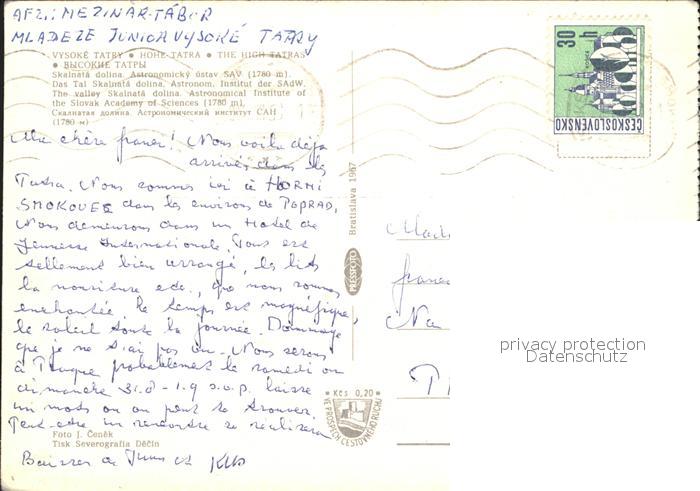 AFZ: MEZINÁR. TÁBOR
MLADEZE JUNIOR VYSOKÉ TATRY
VYSOKÉ TATRY • HOHE TATRA • THE HIGH TATRAS
• ВЫСОКИЕ ТАТРЫ
Skalnatá dolina. Astronomický ústav SAV (1780 m).
Das Tal Skalnatá dolina. Astronom. Institut der SAdW.
The valley Skalnatá dolina. Astronomical Institute of
the Slovak Academy of Sciences (1780 m).
Скалнатая долина. Астрономический институт САН
(1780 м)
Ma chère France! Nous voilà déjà
arrivés dans les
Tatra. Nous sommes ici à HORNI
SMOKOVEC dans les environs de POPRAD.
Nous demeurons dans un Hotel de
Jeunesse Internationale. Tous est
tellement bien arrangé, les lits
la nourriture etc., que nous sommes
enchantée, le temps est magnifique,
le soleil toute la journée. Dommage
que je ne t'ai pas vu. Nous serons
à Prague probablement le samedi ou
dimanche 31.8 - 1.9 s.v.p. laisse
un mots ou on peut te trouver.
Peut-etre un rencontre se realisera
Foto J. Čeněk
Tisk Severografia Děčín
Baisers de
Bratislava 1967
PRESSFOTO
Kčs 0,20
VE PROSPĚCH CESTOVNÉHO RUCHU
30 h
ČESKOSLOVENSKO
Na
privacy protection
Datenschutz